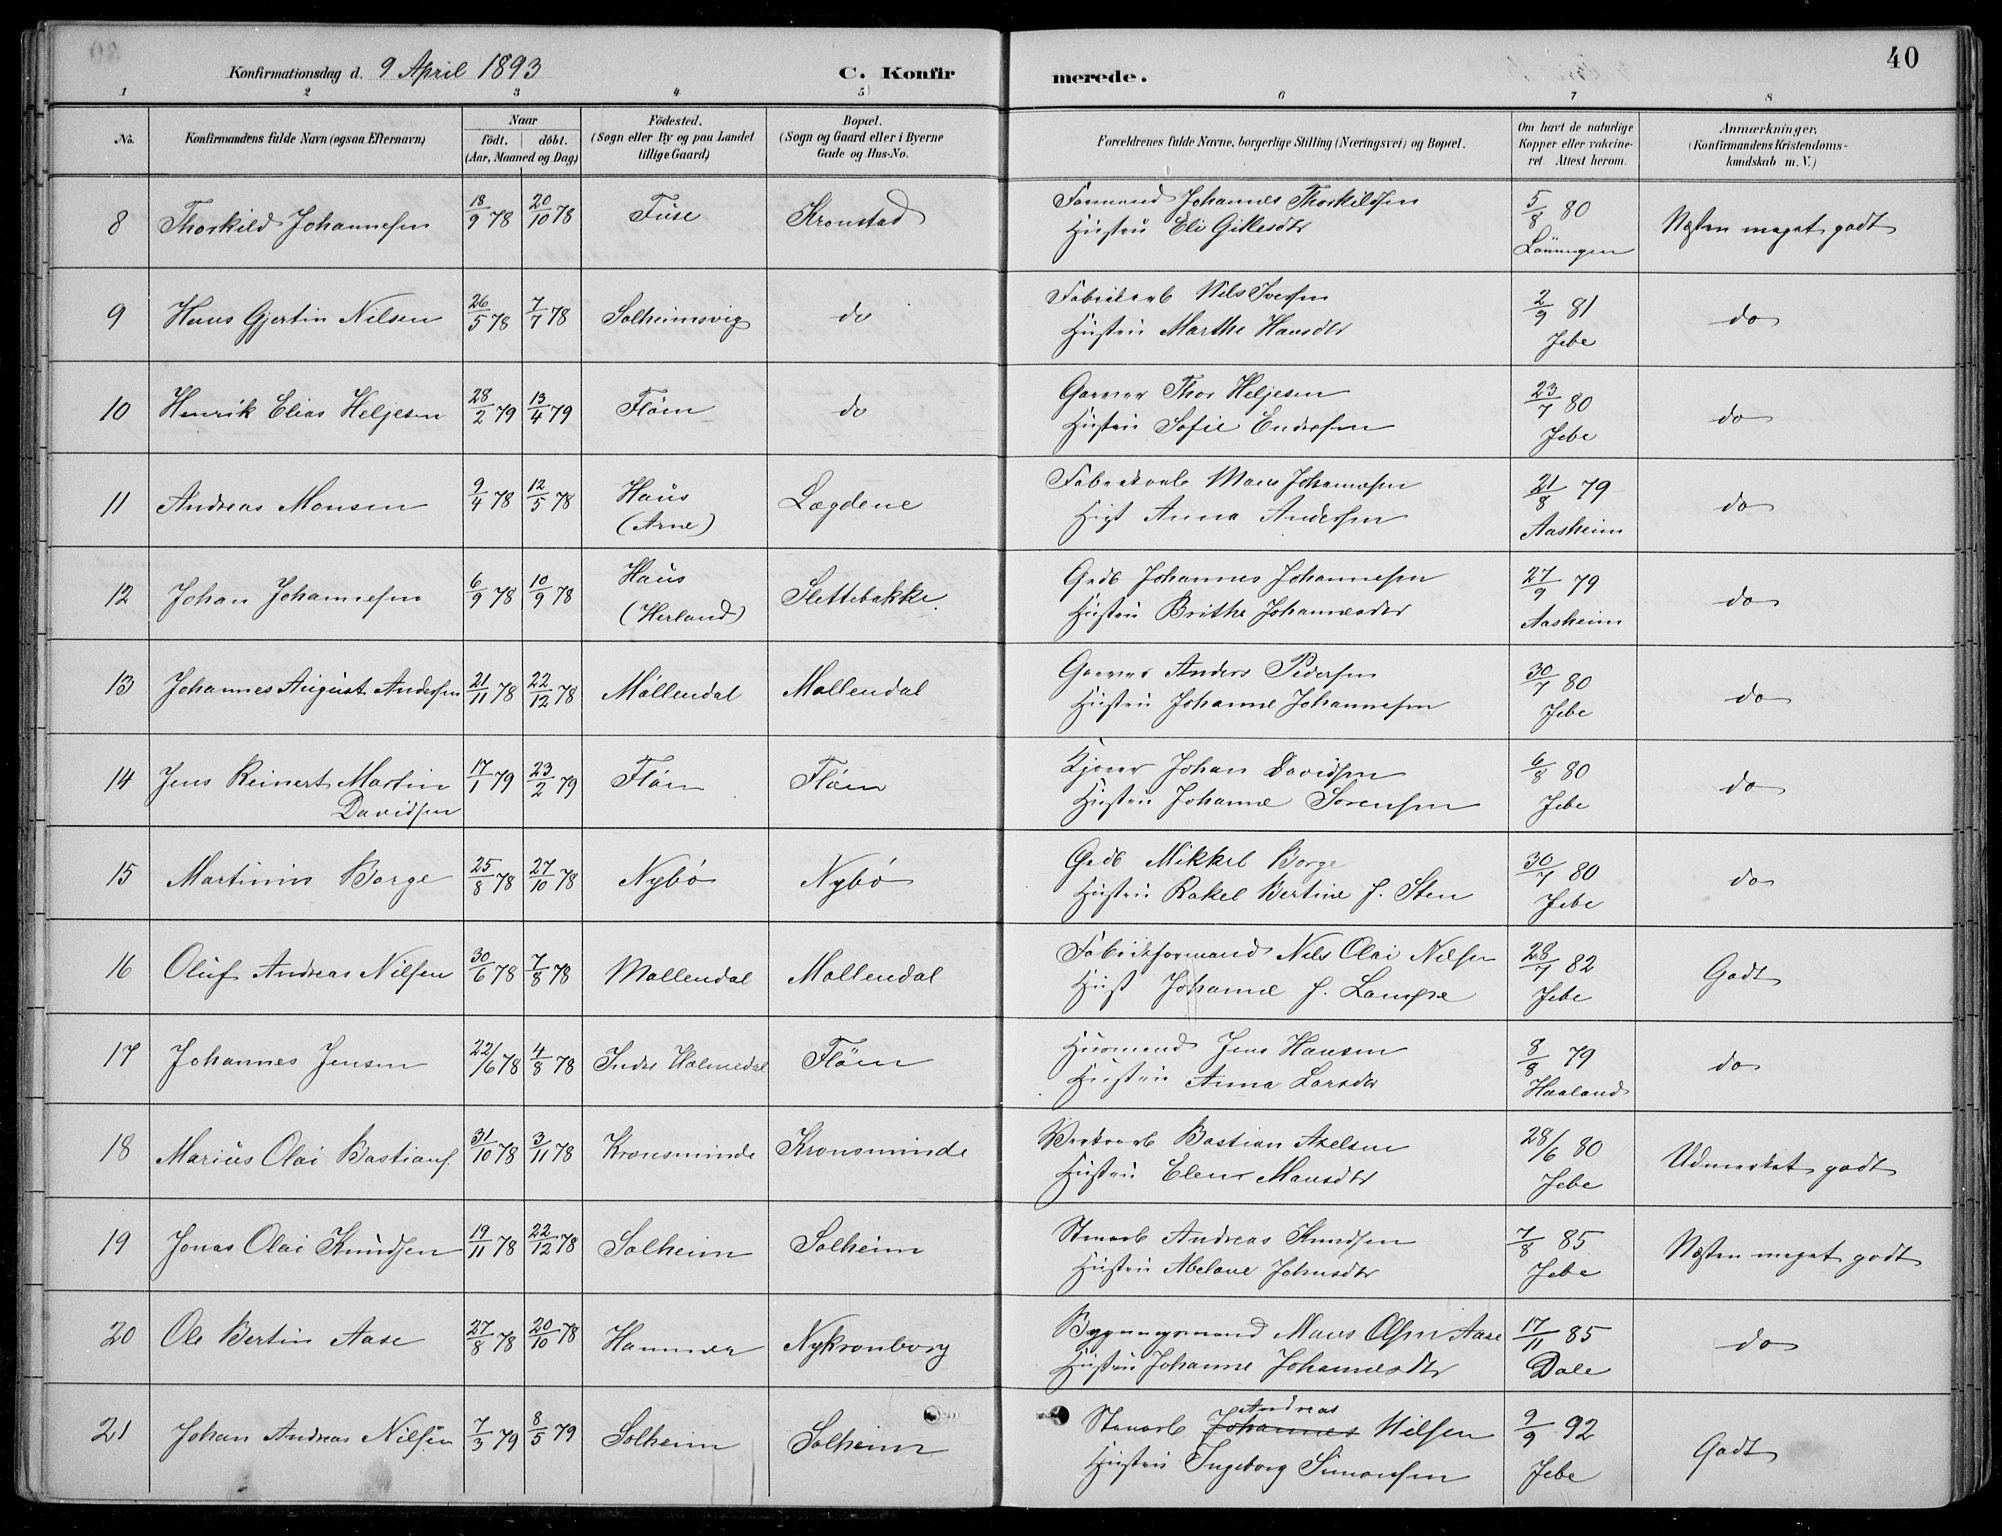 40
Konfirmationsdag d. 9 April 1893 C. Konfir merede.
1 2 3 4 5 6 7 8
No. Konfirmandens fulde Navn (ogsaa Efternavn) Naar født. døbt. (Aar, Maaned og Dag) Fødested. (Sogn eller By og paa Landet tillige Gaard) Bopæl. (Sogn og Gaard eller i Byerne Gade og Hus-No. Forældrenes fulde Navne, borgerlige Stilling (Næringsvei) og Bopæl. Om havt de naturlige Kopper eller vaccineret Attest herom. Anmærkninger. (Konfirmandens Kristendomskundskab m. V.)
8 Thorkild Johannesen 18/9 78 20/10 78 Fuse Kronstad Formand Johannes Thorkildsen 5/8 80 Næsten meget godt
Hustru Eli Gitlesdtr Lønningen
9 Hans Gjertin Nilsen 26/5 78 7/7 78 Solheimsvig do Fabrikarb Nils Iversen 2/9 81 do
Hustru Marthe Hansdtr Jebe
10 Henrik Elias Heljesen 28/2 79 13/4 79 Fløen do Garver Thor Heljesen 23/7 80 do
Hustru Sofie Endresen Jebe
11 Andreas Monsen 9/4 78 12/5 78 Haus Lægdene Fabrikarb Mons Johannesen 21/8 79 do
(Arne) Hust Anna Andersen Aasheim
12 Johan Johannesen 6/9 78 10/9 78 Haus Slettebakke. Grdb Johannes Johannesen 27/9 79 do
(Herland) Hustru Brithe Johannesdtr Aasheim
13 Johannes August Andersen 21/11 78 22/12 78 Møllendal Møllendal Garver Anders Pedersen 30/7 80 do
Hustru Johanne Johannesen Jebe
14 Jens Reinert Martin 17/1 79 23/2 79 Fløen Fløen Kjører Johan Davidsen 6/8 80 do
Davidsen Hustru Johanne Sørensen Jebe
15 Martinus Borge 25/8 78 27/10 78 Nybø Nybø Grdb Mikkel Borge 30/7 80 do
Hustru Rakel Bertine f. Sten Jebe
16 Oluf Andreas Nilsen 30/6 78 7/8 78 Møllendal Møllendal Fabrikformand Nils Olai Nilsen 28/7 82 Godt
Hust Johanne f. Jebe
17 Johannes Jensen 22/6 78 4/8 78 Indre Holmedal Fløen Husmand Jens Hansen 8/8 79 do
Hustru Anna Larsdtr Haaland
18 Marius Olai Bastians. 31/10 78 3/11 78 Kronsminde Kronsminde Værkarb Bastian Axelsen 28/6 80 Udmærket godt
Hustru Elen Monsdtr Jebe
19 Jonas Olai Knudsen 19/11 78 22/12 78 Solheim Solheim Stenarb Andreas Knudsen 7/8 85 Næsten meget godt
Hustru Abelone Johnsdtr Jebe
20 Ole Bertin Aase 27/8 78 20/10 78 Hammer Nykronborg Bygningsmand Mons Olsen Aase 17/11 85 do
Hustru Johanne Johannesdtr Dale
21 Johan Andreas Nilsen 7/3 79 8/5 79 Solheim Solheim Stenarb Johannes Andreas Nilsen 9/9 92 Godt
Hustru Ingeborg Simonsen Jebe